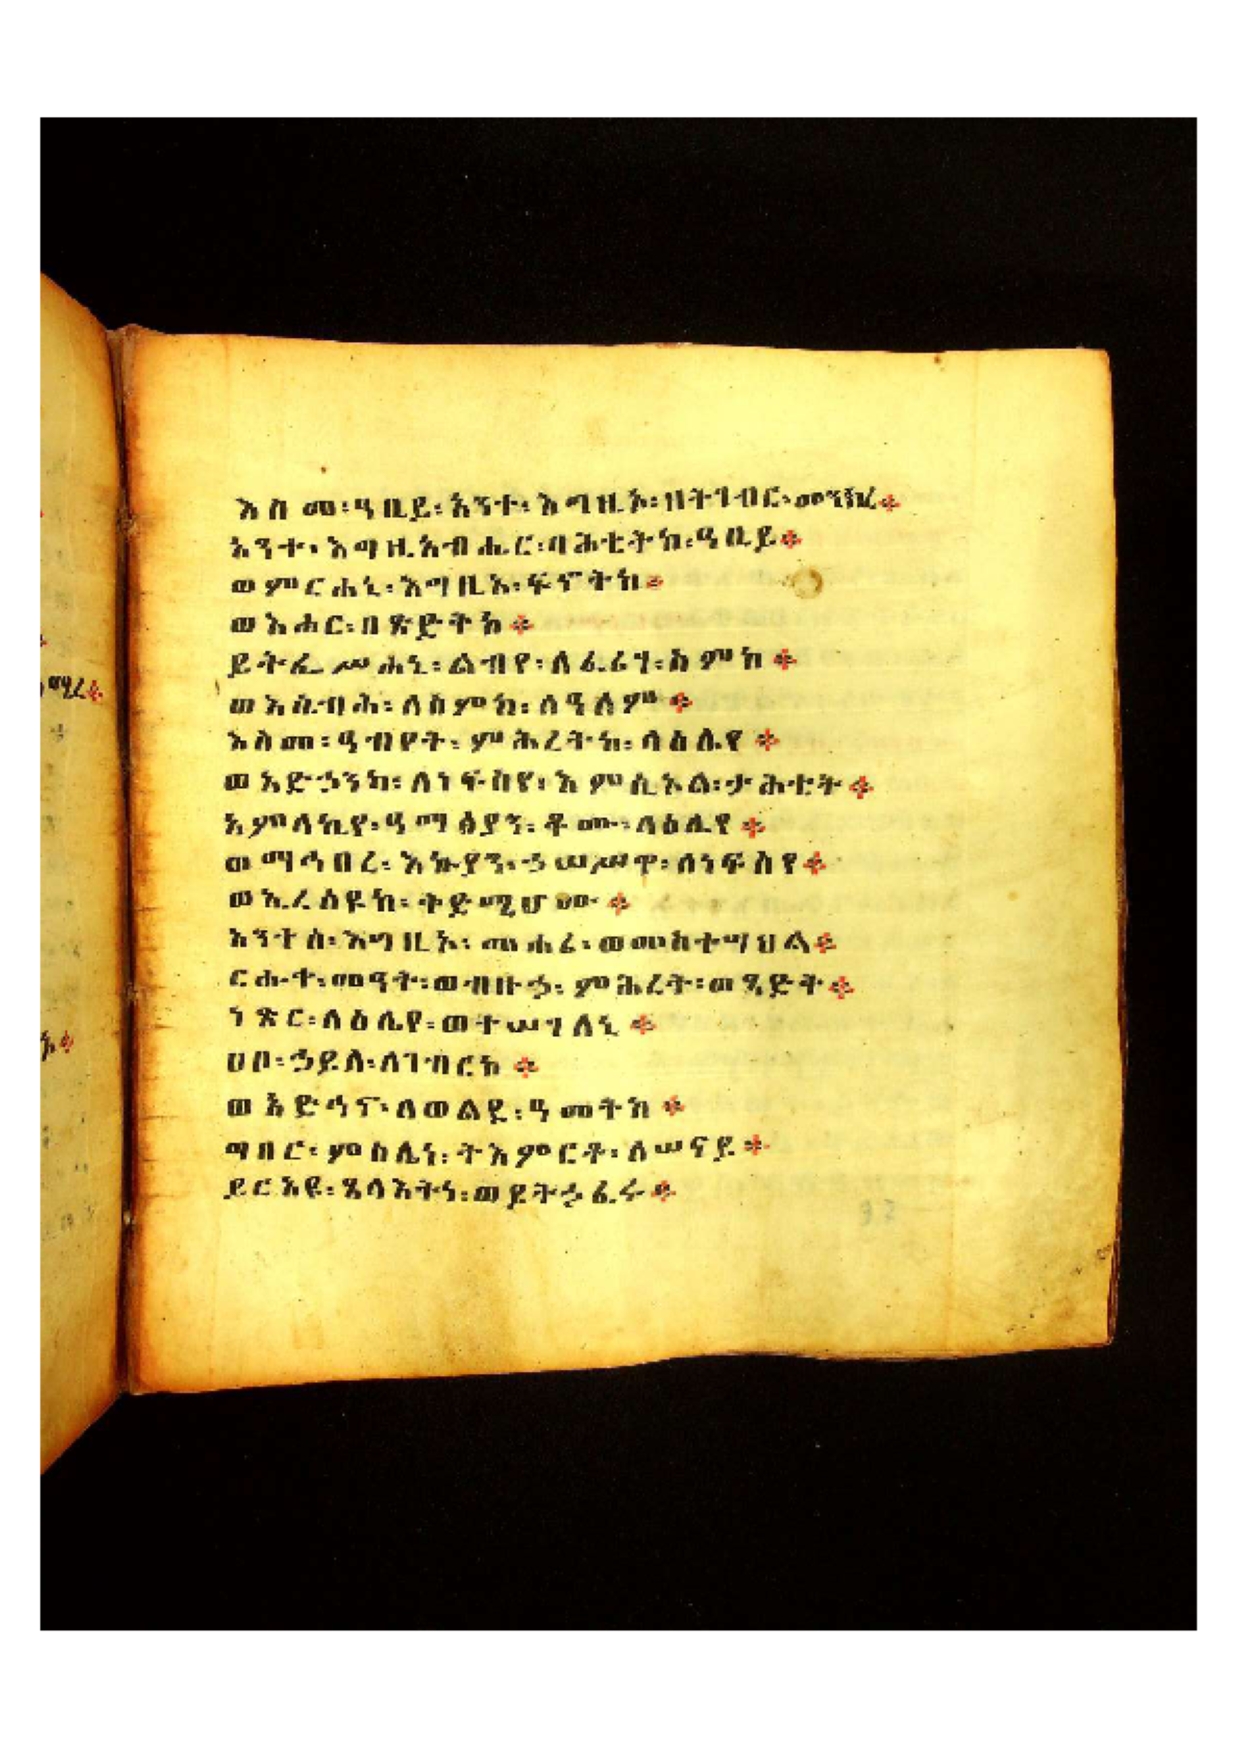 እስመ፡ዓቢይ፡አንተ፡እግዚኦ፡ዘትገብር፡መንክረ፨
አንተ፡እግዚአብሔር፡ባሕቲትከ፡ዓቢይ፨
ወምርሐኒ፡እግዚኦ፡ፍኖትከ፨
ወእሑር፡በጽድቅከ፨
ይትፌሥሐኒ፡ልብየ፡ለፈሪሃ፡ስምከ፨
ወእሴብሕ፡ለስምከ፡ለዓለም፨
እስመ፡ዓብየት፡ምሕረትከ፡ላዕሌየ፨
ወአድኃንካ፡ለነፍስየ፡እምሲኦል፡ታሕቲት፨
አምላኪየ፡ዓማፅያን፡ቆሙ፡ላዕሌየ፨
ወማኅበረ፡እኩያን፡ኃሠሥዋ፡ለነፍስየ፨
ወኢረሰዩከ፡ቅድሜሆሙ፨
አንተሰ፡እግዚኦ፡መሐሪ፡ወመስተሣህል፨
ርሑቀ፡መዓት፡ወብዙኃ፡ምሕረት፡ወጻድቅ፨
ነጽር፡ላዕሌየ፡ወተሣሃለኒ፨
ሀቦ፡ኃይለ፡ለገብርከ፨
ወአድኅኖ፡ለወልደ፡ዓመትከ፨
ግበር፡ምስሌነ፡ትእምርተ፡ለሠናይ፨
ይርአዩ፡ጸላእትነ፡ወይትኃፈሩ፨